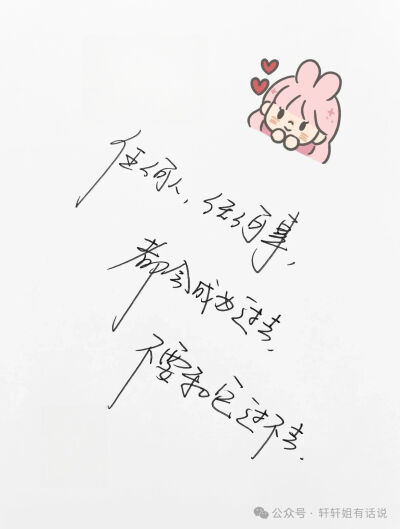 任何人，任何事，
都会成为过去，
不要和它过不去.
公众号 · 轩轩姐有话说